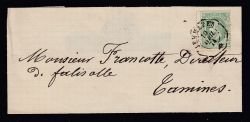 Monsieur Francotte, Directeur
d. falisolle
Tamines.